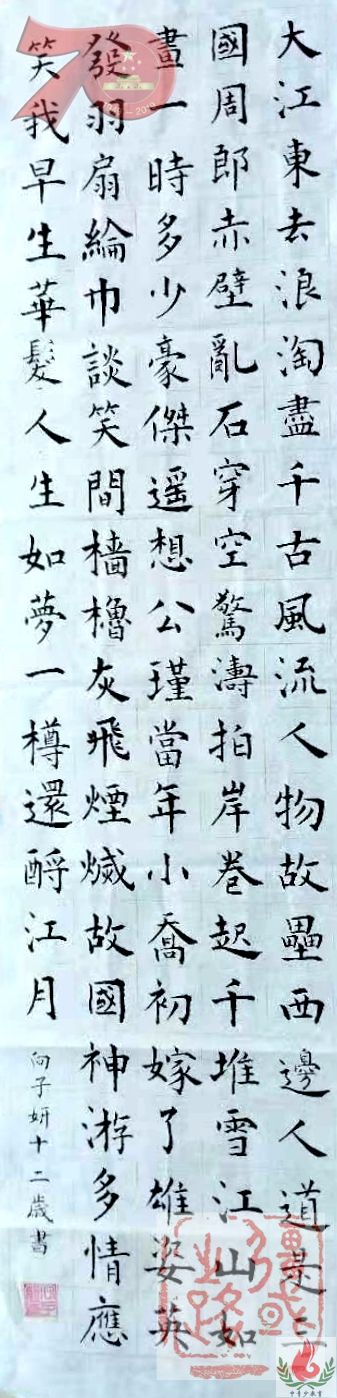 大江東去浪淘盡千古風流人物故壘西邊人道是三
國周郎赤壁亂石穿空驚濤拍岸卷起千堆雪江山如
畫一時多少豪傑遥想公瑾當年小喬初嫁了雄姿英
發羽扇綸巾談笑間檣櫓灰飛煙滅故國神游多情應
笑我早生華髮人生如夢一樽還酹江月
向子妍十二歲書
70